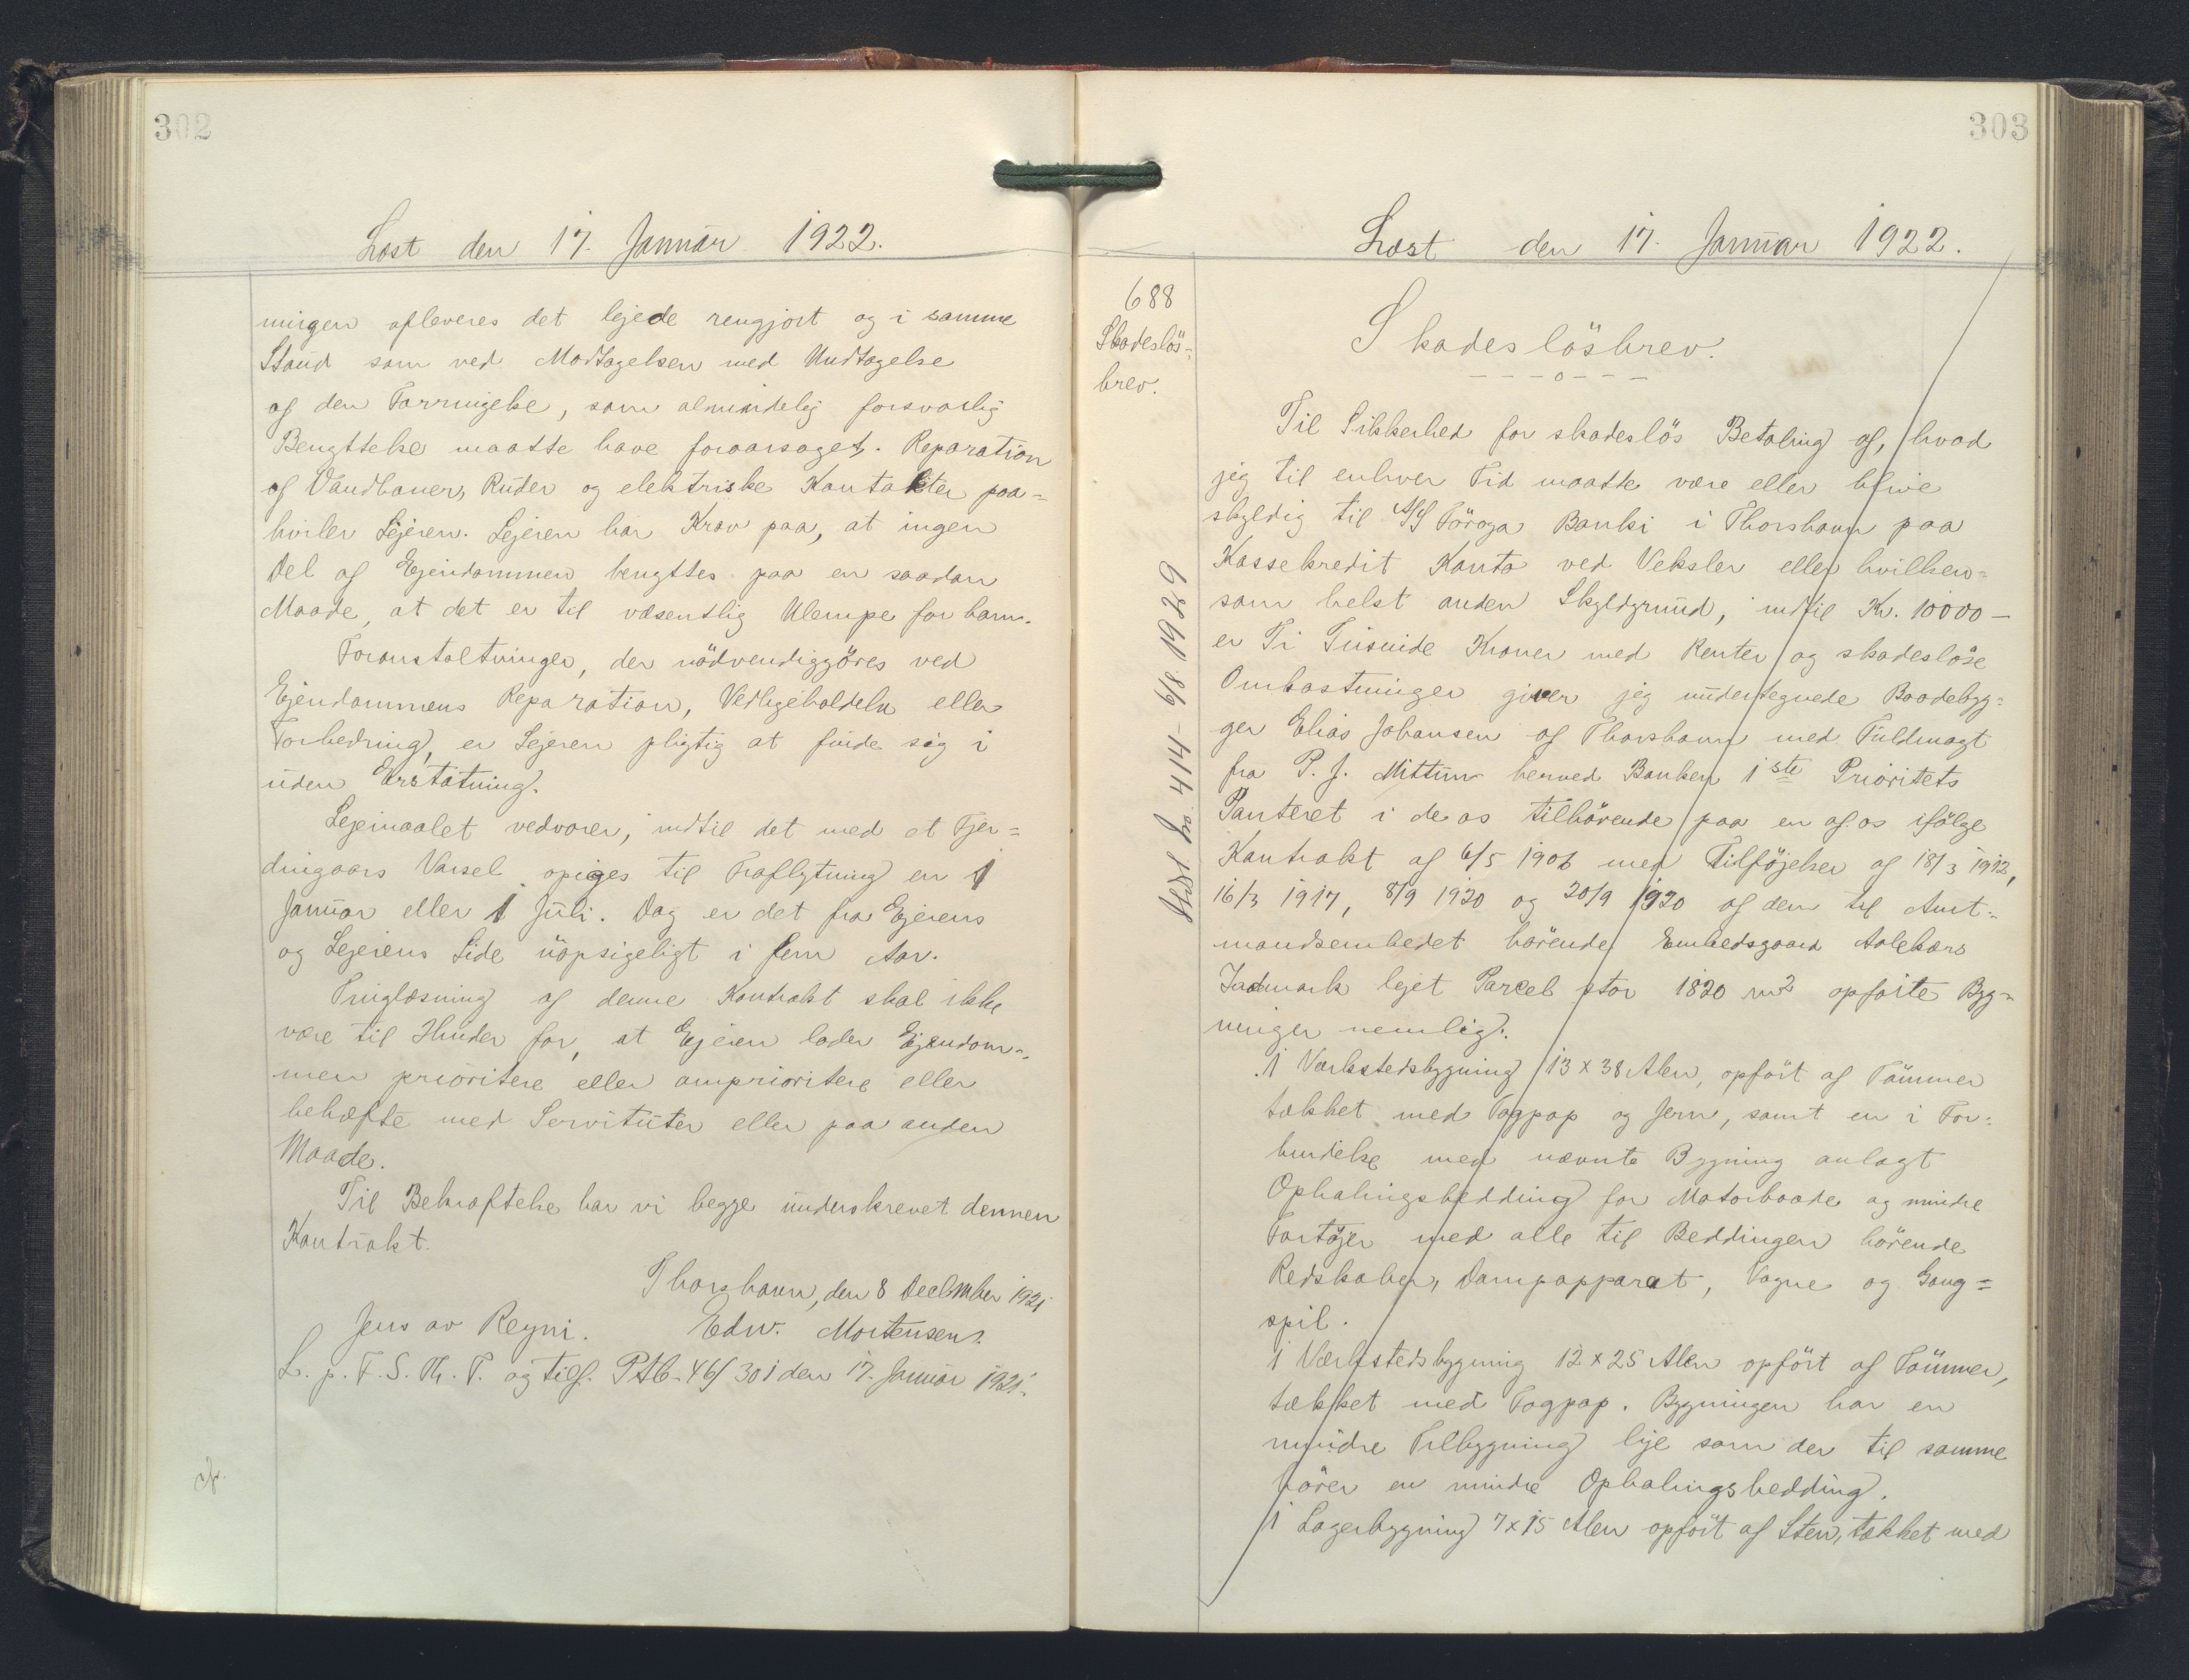 302
Læst den 17. Januar 1922.
ningen afleveres det lejede rengjort og i samme
Stand som ved Modtagelsen med Undtagelse
af den Forringelse, som almindelig forsvarlig
Benyttelse maatte have foraarsaget. Reparation
af Vandhaner, Ruder og elektriske Kontakter paa-
hviler Lejeren. Lejeren har Krav paa, at ingen
Del af Ejendommen benyttes paa en saadan
Maade, at det er til væsentlig Ulempe for ham.
Foranstaltninger, der nödvendiggöres ved
Ejendommens Reparation, Vedligeholdelse eller
Forbedring, er Lejeren pligtig at finde sig i
uden Erstatning.
Lejemaalet vedvarer, indtil det med et Fjer=
dingaars Varsel opsiges til Fraflytning en 1
Januar eller 1 Juli. Dog er det fra Ejerens
og Lejerens Side uopsigeligt i fem Aar.
Tinglæsning af denne Kontrakt skal ikke
være til Hinder for, at Ejeren lader Ejendom-
men prioritere eller omprioritere eller
behæfte med Servituter eller paa anden
Maade.
Til Bekræftelse har vi begge underskrevet dennen
Kontrakt.
Thorshavn, den 8 December 1921
Jens av Reyni. Edw. Mortensen.
L. p. F. S. Th. T. og tilf. PAb. 46/301 den 17. Januar 1921.
303
Læst den 17. Januar 1922.
688
Skadeslös-
brev.
Skadeslösbrev.
Til Sikkerhed for skadeslös Betaling af, hvad
jeg til enhver Tid maatte være eller blive
skyldig til A/S Föroya Banki i Thorshavn paa
Kassekredit Konto ved Veksler eller hvilken-
som helst anden Skyldgrund, indtil Kr. 10000 —
er Ti Tusinde Kroner med Renter og skadeslöse
Omkostninger giver jeg undertegnede Baadebyg=
ger Elias Johansen af Thorshavn med Fuldmagt
fra P. J. Mittún herved Banken 1ste Prioritets
Panteret i de os tilhörende paa en af os ifölge
Kontrakt af 6/5 1906 med Tilföjelser af 18/3 1912,
16/3 1917, 8/9 1920 og 20/9 1920 af den til Amt-
mandsembedet hörende Embedsgaard Aalekærs
Indmark lejet Parcel stor 1820 m2 opförte Byg-
ninger nemlig:
1 Værkstedsbygning 13 x 38 Alen, opfört af Tömmer
tækket med Tagpap og Jern, samt en i For-
bindelse med nævnte Bygning anlagt
Ophalingsbedding for Motorbaade og mindre
Fartöjer med alle til Beddingen hörende
Redskaber, Dampapparat, Vogne og Gang=
spil.
1 Værkstedsbygning 12 x 25 Alen opfört af Tömmer,
tækket med Tagpap. Bygningen har en
mindre Tilbygning lige som der til samme
hörer en mindre Ophalingsbedding.
1 Lagerbygning 7 x 15 Alen opfört af Sten, tækket med
414 - 6/8 1929